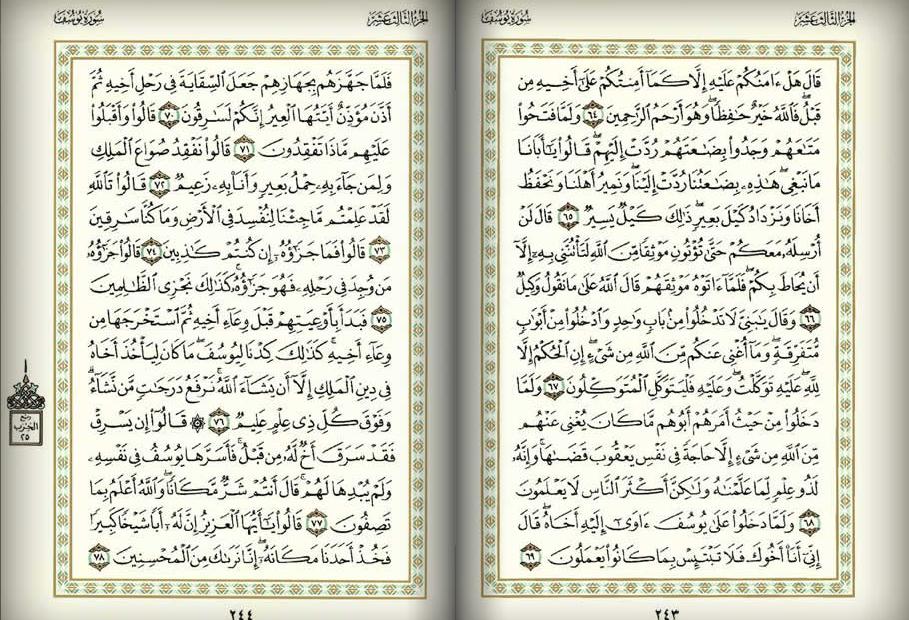 الجزء الثالث عشر
سورة يوسف
قَالَ هَلْ ءَامَنُكُمْ عَلَيْهِ إِلَّا كَمَآ أَمِنتُكُمْ عَلَىٰٓ أَخِيهِ مِن
قَبْلُ ۖ فَٱللَّهُ خَيْرٌ حَٰفِظًا ۖ وَهُوَ أَرْحَمُ ٱلرَّٰحِمِينَ ٦٤ وَلَمَّا فَتَحُوا۟
مَتَٰعَهُمْ وَجَدُوا۟ بِضَٰعَتَهُمْ رُدَّتْ إِلَيْهِمْ ۖ قَالُوا۟ يَٰٓأَبَانَا
مَا نَبْغِى ۖ هَٰذِهِۦ بِضَٰعَتُنَا رُدَّتْ إِلَيْنَا ۖ وَنَمِيرُ أَهْلَنَا وَنَحْفَظُ
أَخَانَا وَنَزْدَادُ كَيْلَ بَعِيرٍ ۖ ذَٰلِكَ كَيْلٌ يَسِيرٌ ٦٥ قَالَ لَنْ
أُرْسِلَهُۥ مَعَكُمْ حَتَّىٰ تُؤْتُونِ مَوْثِقًا مِّنَ ٱللَّهِ لَتَأْتُنَّنِى بِهِۦٓ إِلَّآ
أَن يُحَاطَ بِكُمْ ۖ فَلَمَّآ ءَاتَوْهُ مَوْثِقَهُمْ قَالَ ٱللَّهُ عَلَىٰ مَا نَقُولُ وَكِيلٌ
٦٦ وَقَالَ يَٰبَنِىَّ لَا تَدْخُلُوا۟ مِنۢ بَابٍ وَٰحِدٍ وَٱدْخُلُوا۟ مِنْ أَبْوَٰبٍ
مُّتَفَرِّقَةٍ ۖ وَمَآ أُغْنِى عَنكُم مِّنَ ٱللَّهِ مِن شَىْءٍ ۖ إِنِ ٱلْحُكْمُ إِلَّا
لِلَّهِ ۖ عَلَيْهِ تَوَكَّلْتُ ۖ وَعَلَيْهِ فَلْيَتَوَكَّلِ ٱلْمُتَوَكِّلُونَ ٦٧ وَلَمَّا
دَخَلُوا۟ مِنْ حَيْثُ أَمَرَهُمْ أَبُوهُم مَّا كَانَ يُغْنِى عَنْهُم
مِّنَ ٱللَّهِ مِن شَىْءٍ إِلَّا حَاجَةً فِى نَفْسِ يَعْقُوبَ قَضَىٰهَا ۚ وَإِنَّهُۥ
لَذُو عِلْمٍ لِّمَا عَلَّمْنَٰهُ وَلَٰكِنَّ أَكْثَرَ ٱلنَّاسِ لَا يَعْلَمُونَ
٦٨ وَلَمَّا دَخَلُوا۟ عَلَىٰ يُوسُفَ ءَاوَىٰٓ إِلَيْهِ أَخَاهُ ۖ قَالَ
إِنِّىٓ أَنَا۠ أَخُوكَ فَلَا تَبْتَئِسْ بِمَا كَانُوا۟ يَعْمَلُونَ ٦٩
٢٤٣
الجزء الثالث عشر
سورة يوسف
فَلَمَّا جَهَّزَهُم بِجَهَازِهِمْ جَعَلَ ٱلسِّقَايَةَ فِى رَحْلِ أَخِيهِ ثُمَّ
أَذَّنَ مُؤَذِّنٌ أَيَّتُهَا ٱلْعِيرُ إِنَّكُمْ لَسَٰرِقُونَ ٧٠ قَالُوا۟ وَأَقْبَلُوا۟
عَلَيْهِم مَّاذَا تَفْقِدُونَ ٧١ قَالُوا۟ نَفْقِدُ صُوَاعَ ٱلْمَلِكِ
وَلِمَن جَآءَ بِهِۦ حِمْلُ بَعِيرٍ وَأَنَا۠ بِهِۦ زَعِيمٌ ٧٢ قَالُوا۟ تَٱللَّهِ
لَقَدْ عَلِمْتُم مَّا جِئْنَا لِنُفْسِدَ فِى ٱلْأَرْضِ وَمَا كُنَّا سَٰرِقِينَ
٧٣ قَالُوا۟ فَمَا جَزَٰٓؤُهُۥٓ إِن كُنتُمْ كَٰذِبِينَ ٧٤ قَالُوا۟ جَزَٰٓؤُهُۥ
مَن وُجِدَ فِى رَحْلِهِۦ فَهُوَ جَزَٰٓؤُهُۥ ۚ كَذَٰلِكَ نَجْزِى ٱلظَّٰلِمِينَ
٧٥ فَبَدَأَ بِأَوْعِيَتِهِمْ قَبْلَ وِعَآءِ أَخِيهِ ثُمَّ ٱسْتَخْرَجَهَا مِن
وِعَآءِ أَخِيهِ ۚ كَذَٰلِكَ كِدْنَا لِيُوسُفَ ۖ مَا كَانَ لِيَأْخُذَ أَخَاهُ
فِى دِينِ ٱلْمَلِكِ إِلَّآ أَن يَشَآءَ ٱللَّهُ ۚ نَرْفَعُ دَرَجَٰتٍ مَّن نَّشَآءُ ۗ
وَفَوْقَ كُلِّ ذِى عِلْمٍ عَلِيمٌ ٧٦ ۞ قَالُوٓا۟ إِن يَسْرِقْ
فَقَدْ سَرَقَ أَخٌ لَّهُۥ مِن قَبْلُ ۚ فَأَسَرَّهَا يُوسُفُ فِى نَفْسِهِۦ
وَلَمْ يُبْدِهَا لَهُمْ ۚ قَالَ أَنتُمْ شَرٌّ مَّكَانًا ۖ وَٱللَّهُ أَعْلَمُ بِمَا
تَصِفُونَ ٧٧ قَالُوا۟ يَٰٓأَيُّهَا ٱلْعَزِيزُ إِنَّ لَهُۥٓ أَبًا شَيْخًا كَبِيرًا
فَخُذْ أَحَدَنَا مَكَانَهُۥٓ ۖ إِنَّا نَرَىٰكَ مِنَ ٱلْمُحْسِنِينَ ٧٨
٢٤٤
ربع
الحزب
٢٥